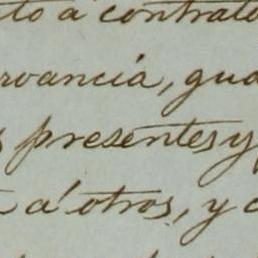 to á contrato
rvancia, gua
s presentes y
á otros, y c